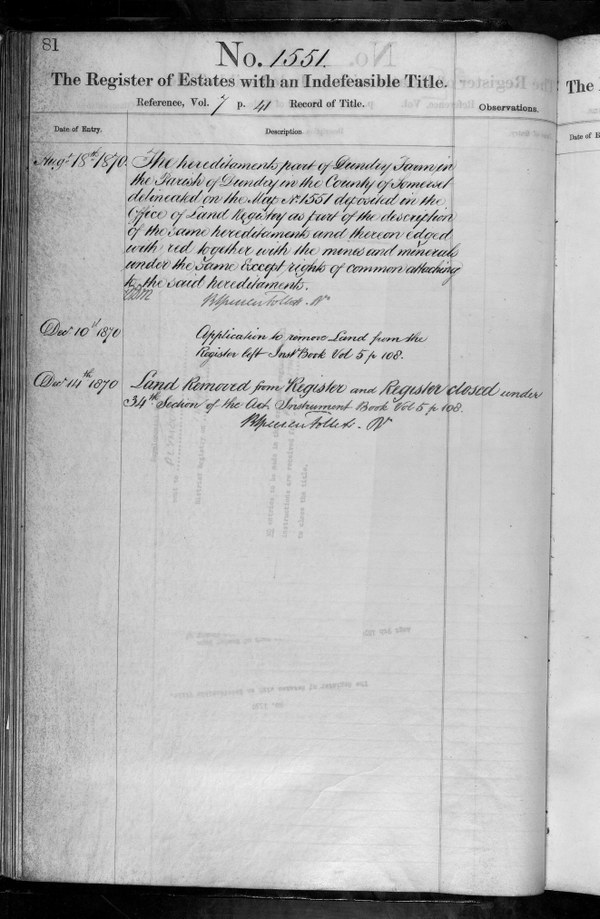 81
No. 1551.
The Register of Estates with an Indefeasible Title.
Reference, Vol. 7 p. 41 Record of Title.
Observations.
Date of Entry.
Description.
Augt 18th 1870
The hereditaments part of Dundry Farm in
the Parish of Dundry in the County of Somerset
delineated on the Map No. 1551 deposited in the
Office of Land Registry as part of the description
of the same hereditaments and thereon edged
with red together with the mines and minerals
under the same Except rights of common attaching
to the said hereditaments.
Decr 10th 1870
Application to remove Land from the
Register left Inst Book Vol 5 p 108.
Decr 14th 1870
Land Removed from Register and Register closed under
34th Section of the Act. Instrument Book Vol 5 p 108.
The
Date of